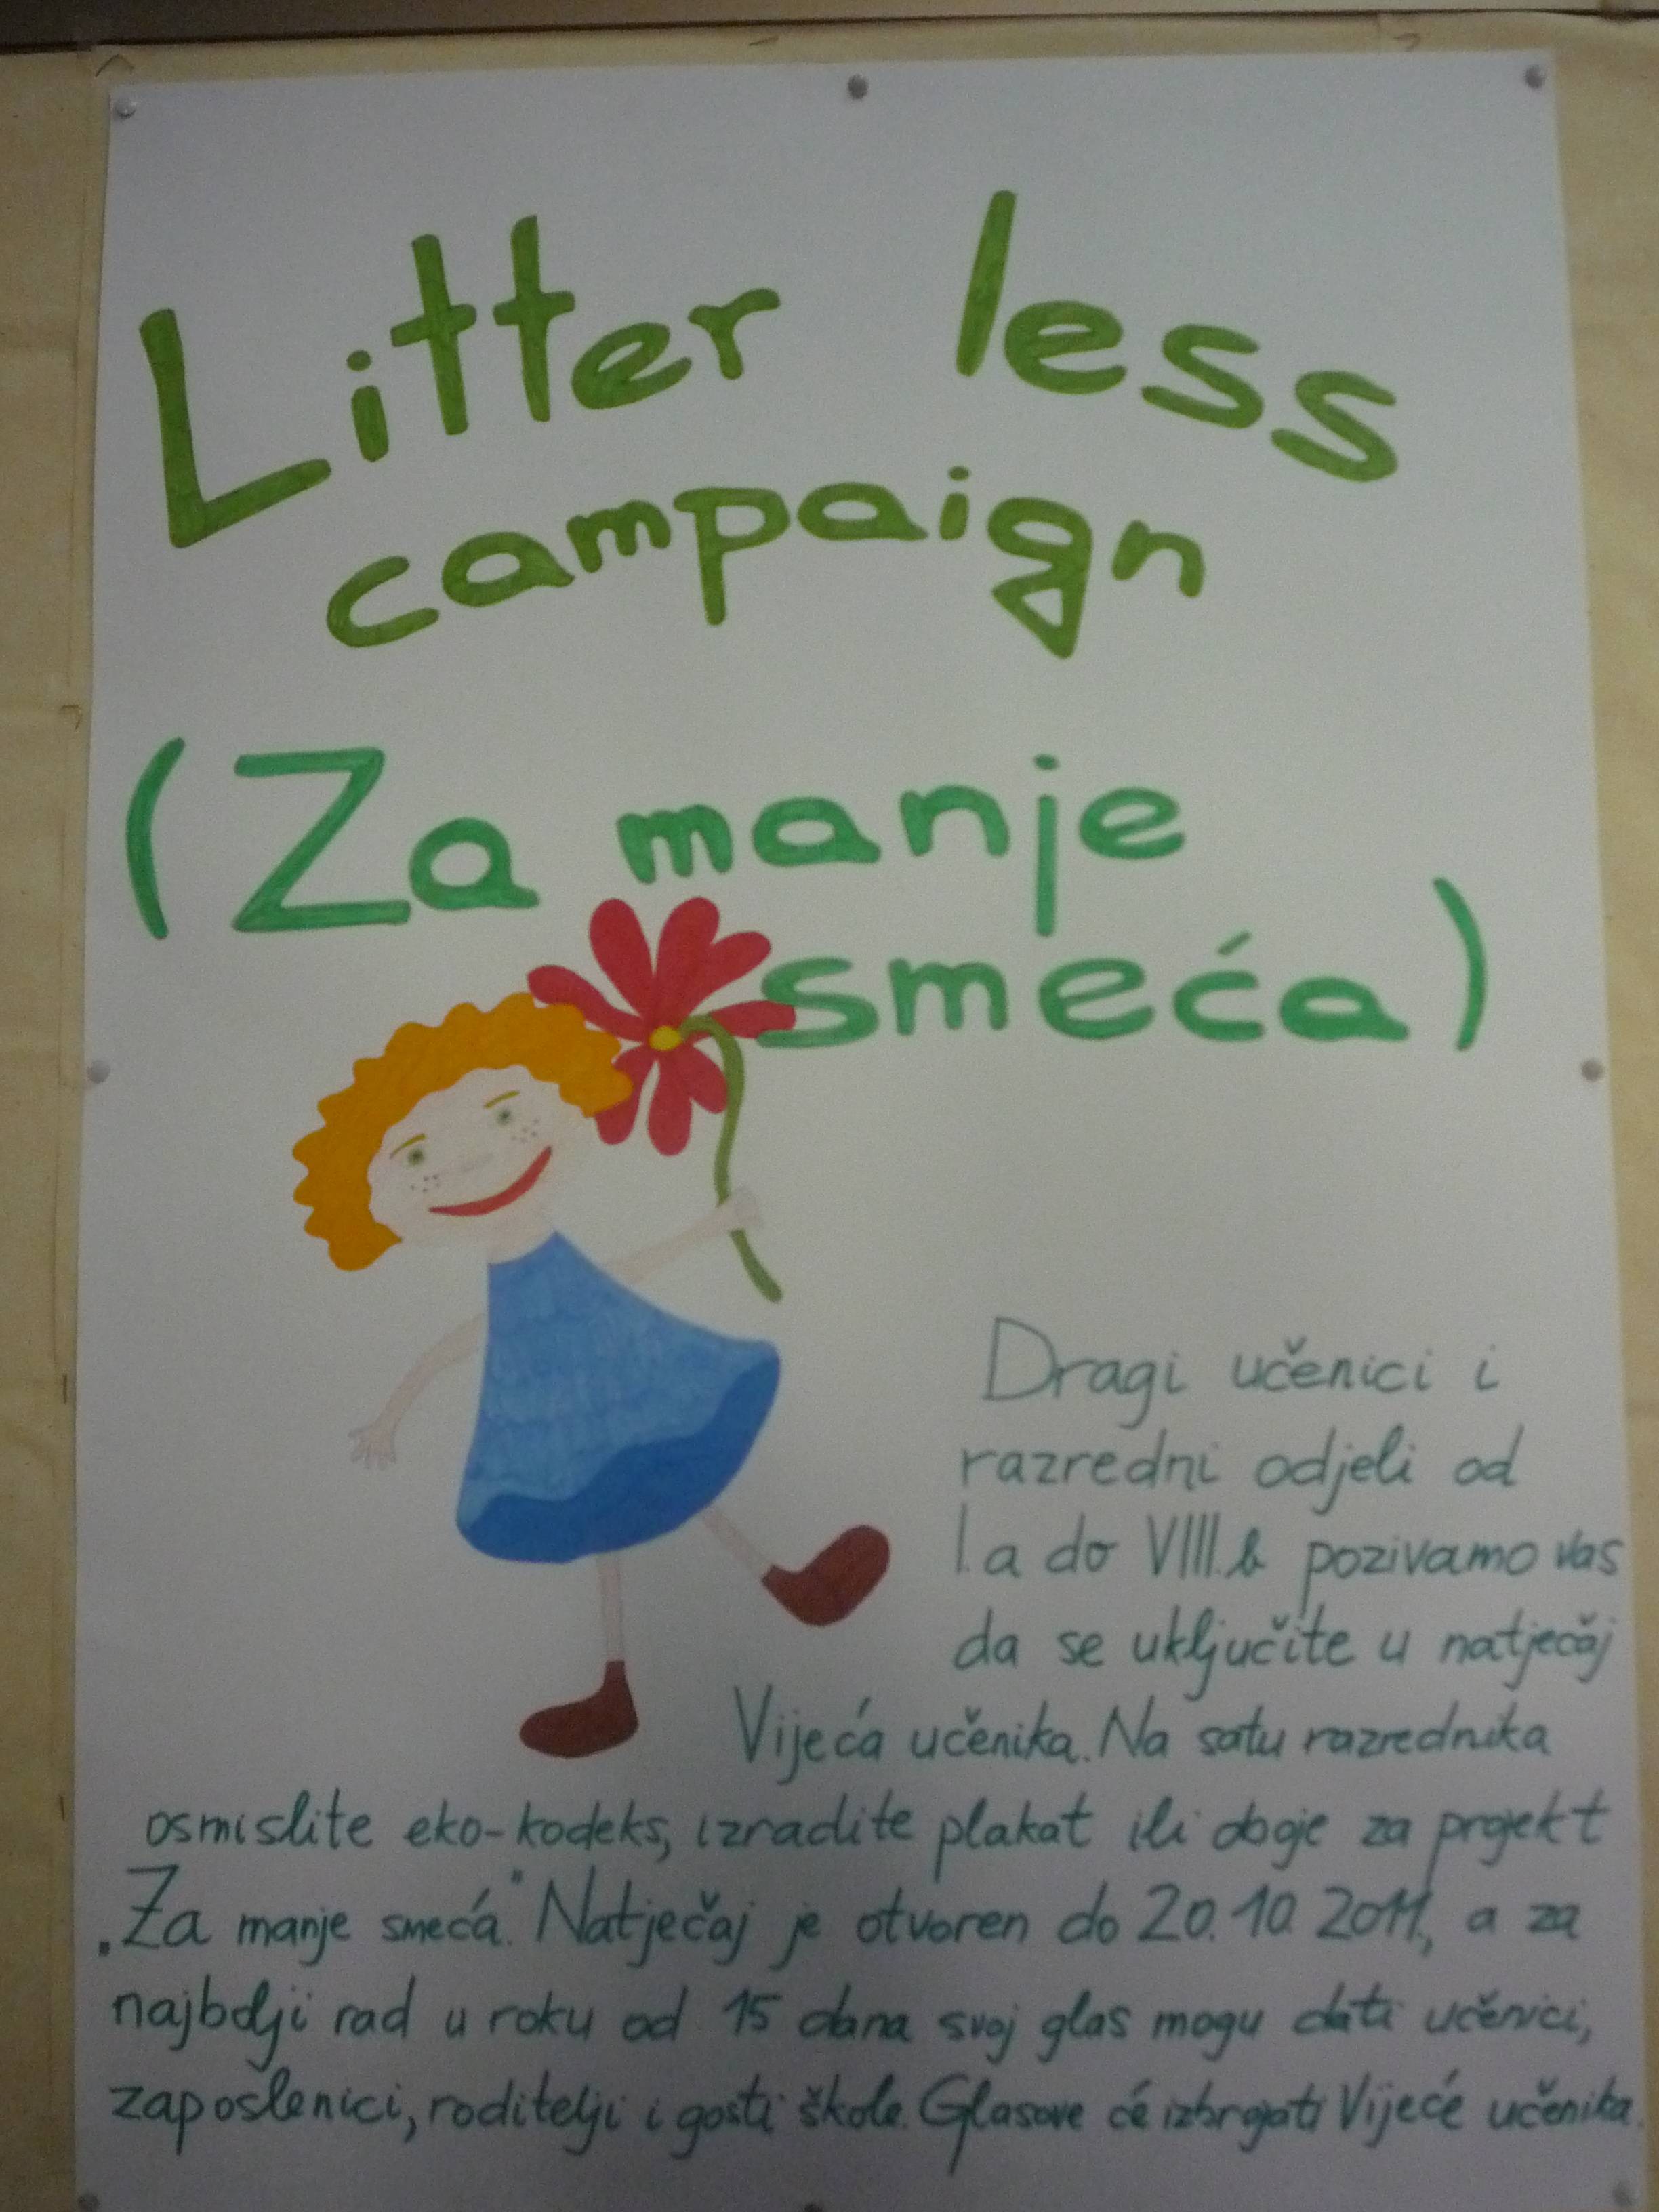 Litter less
campaign
(Za manje
smeća)
Dragi učenici i
razredni odjeli od
I.a do VIII.b pozivamo vas
da se uključite u natječaj
Vijeća učenika. Na satu razrednika
osmislite eko-kodeks, izradite plakat ili dvoje za projekt
„Za manje smeća." Natječaj je otvoren do 20.10.2011., a za
najbolji rad u roku od 15 dana svoj glas mogu dati učenici,
zaposlenici, roditelji i gosti škole. Glasove će izbrojati Vijeće učenika.